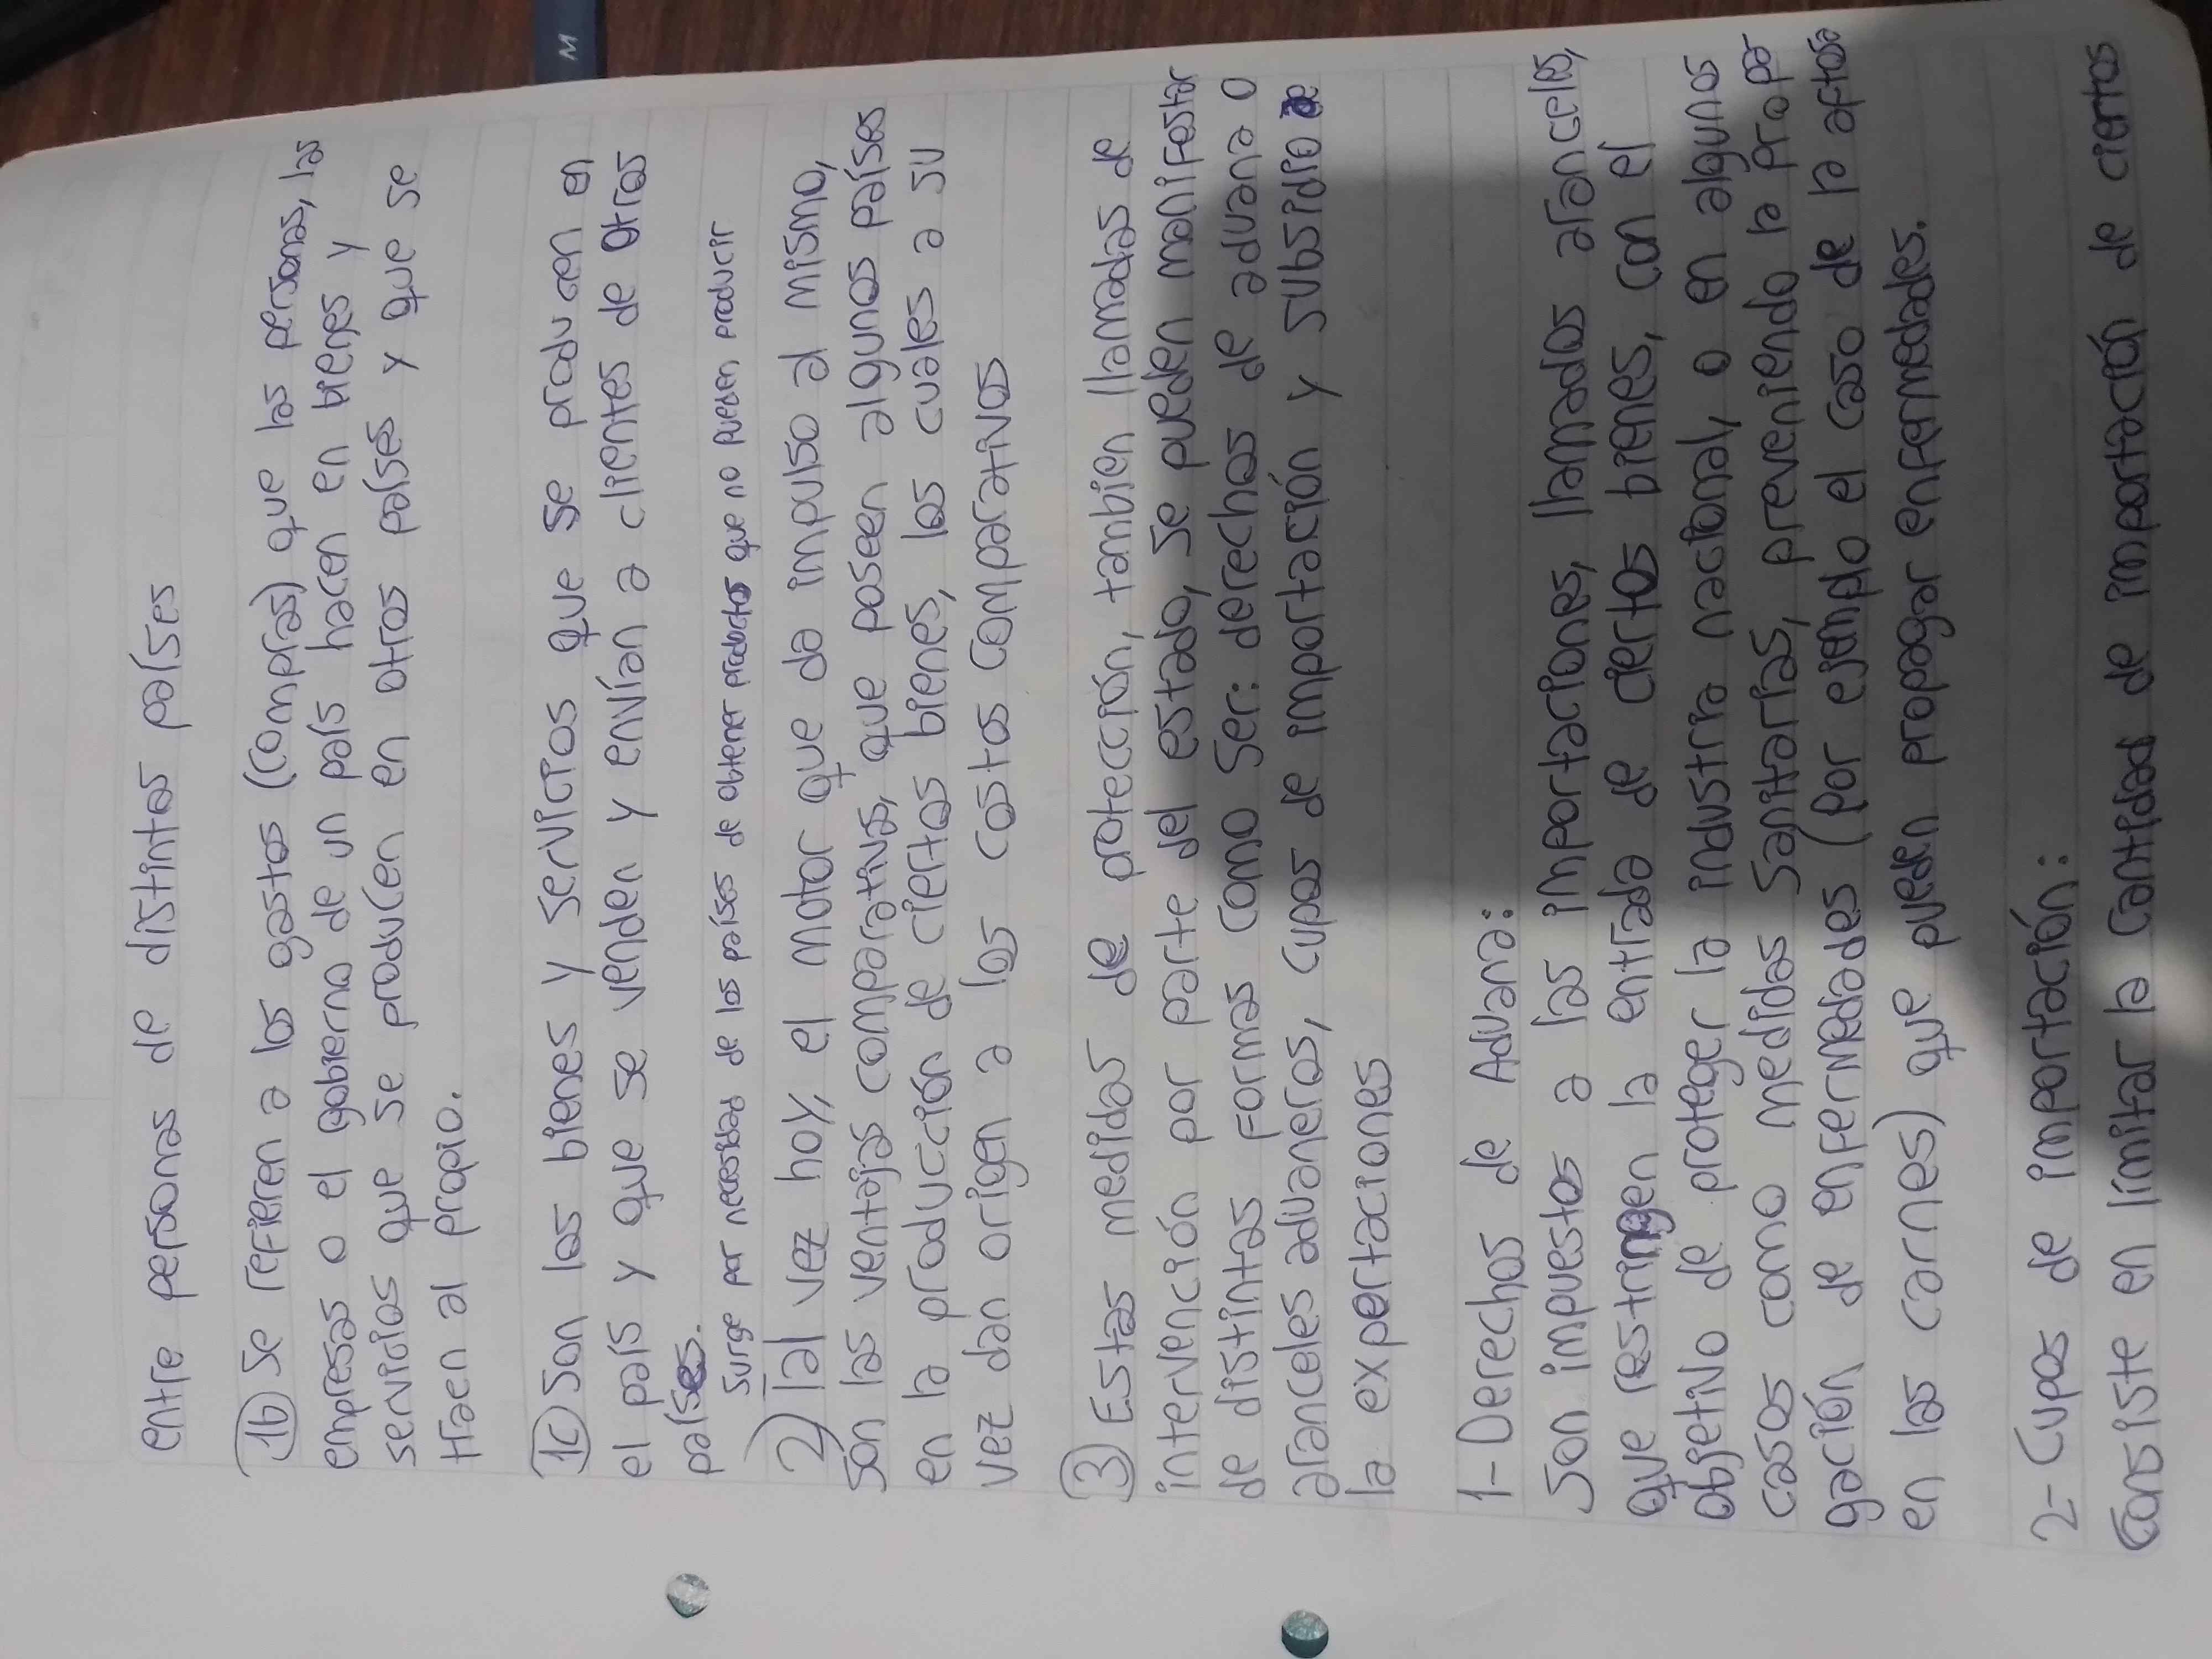 entre personas de distintos países
1b) Se refieren a los gastos (compras) que las personas, las
empresas o el gobierno de un país hacen en bienes y
servicios que se producen en otros países y que se
traen al propio.
1c) Son los bienes y servicios que se producen en
el país y que se venden y envían a clientes de otros
países.
Surge por necesidad de los países de obtener productos que no pueden producir
2) Tal vez hoy, el motor que da impulso al mismo,
son las ventajas comparativas, que poseen algunos países
en la producción de ciertos bienes, los cuales a su
vez dan origen a los costos comparativos
3) Estas medidas de protección, tambien llamadas de
intervención por parte del estado, se pueden manifestar
de distintas formas como ser: derechos de aduana o
aranceles aduaneros, cupos de importación y subsidio de
la expertaciones
1- Derechos de Aduana:
Son impuestos a las importaciones, llamados aranceles,
que restringen la entrada de ciertos bienes, con el
objetivo de proteger la industria nacional, o en algunos
casos como medidas sanitarias, previniendo la propa
gación de enfermedades (por ejemplo el caso de la aftosa
en las carnes) que pueden propagar enfermedades.
2- Cupos de importación:
Consiste en límitar la cantidad de importación de ciertos
W